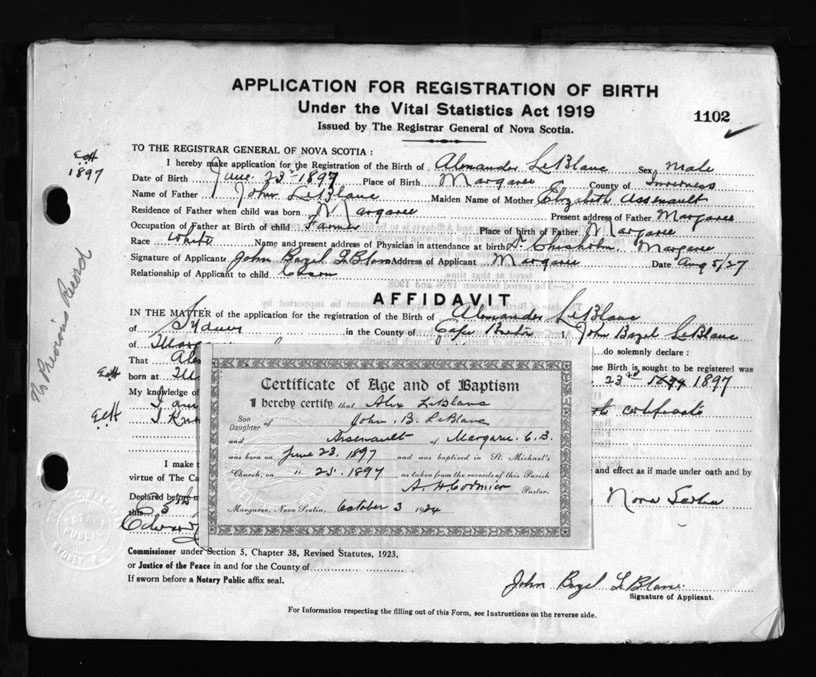 APPLICATION FOR REGISTRATION OF BIRTH
Under the Vital Statistics Act 1919
1102
Issued by The Registrar General of Nova Scotia.
TO THE REGISTRAR GENERAL OF NOVA SCOTIA :
1897
I hereby make application for the Registration of the Birth of Alexander LeBlanc Sex Male
Date of Birth June 23rd 1897 Place of Birth Margaree County of Inverness
Name of Father John LeBlanc Maiden Name of Mother Elizabeth Assenault
Residence of Father when child was born Margaree Present address of Father Margaree
Occupation of Father at Birth of child Farmer Place of birth of Father Margaree
Race White Name and present address of Physician in attendance at birth Dr Chisholm, Margaree
Signature of Applicant John Bazel LeBlanc Address of Applicant Margaree Date Aug 5/27
Relationship of Applicant to child
No Previous Record
AFFIDAVIT
IN THE MATTER of the application for the registration of the Birth of Alexander LeBlanc
of Sydney in the County of Cape Breton I, John Bazel LeBlanc
of do solemnly declare :
That Birth is sought to be registered was
born at 23rd 1897
My knowledge of
I am
I
I make
virtue of The and effect as if made under oath and by
Declared before Nova Scotia
this 5th
Edward
Certificate of Age and of Baptism
I hereby certify that Alex LeBlanc
Son
Daughter of John B. LeBlanc
and Arsenault of Margaree C.B.
was born on June 23, 1897 and was baptized in St. Michael's
Church, on " 25. 1897 as taken from the records of this Parish
A. H Cormier Pastor.
Margaree, Nova Scotia, October 3 1924
Commissioner under Section 5, Chapter 38, Revised Statutes, 1923.
or Justice of the Peace in and for the County of
If sworn before a Notary Public affix seal.
John Bazel LeBlanc
Signature of Applicant.
For Information respecting the filling out of this Form, see Instructions on the reverse side.